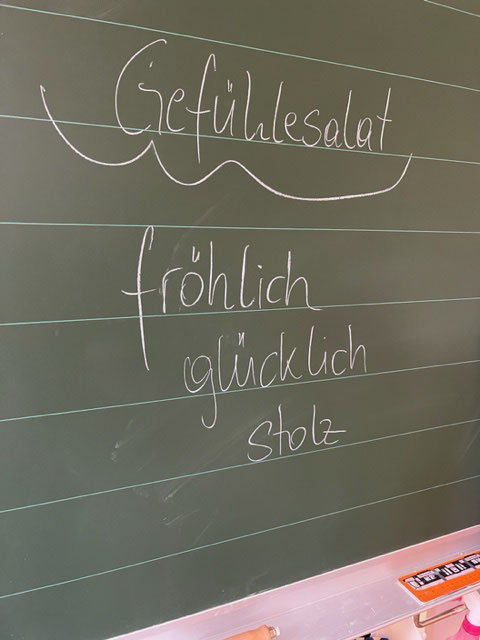 Gefühlesalat
fröhlich
glücklich
stolz